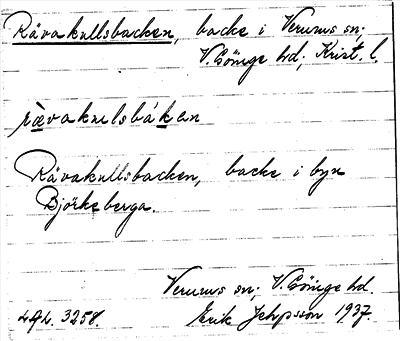 Rävakullsbacken, backe i Verums sn;
V. Göinge hd; Krist. l.
rævakulsbákan
Rävakullsbacken, backe i byn
Björkeberga.
Verums sn; V. Göinge hd.
3258. Erik Jeppsson 1937.